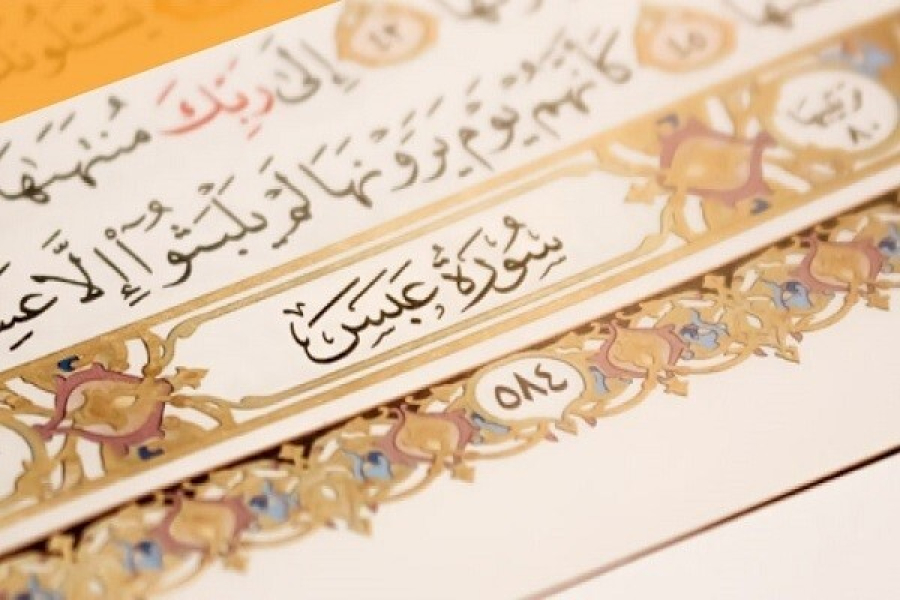 ٤٣ إِلَىٰ رَبِّكَ مُنتَهَىٰهَا
٤٥ كَأَنَّهُمْ يَوْمَ يَرَوْنَهَا لَمْ يَلْبَثُوٓا۟ إِلَّا
ترتيبها
٨٠
سُورَةُ عَبَسَ
٥٨٤